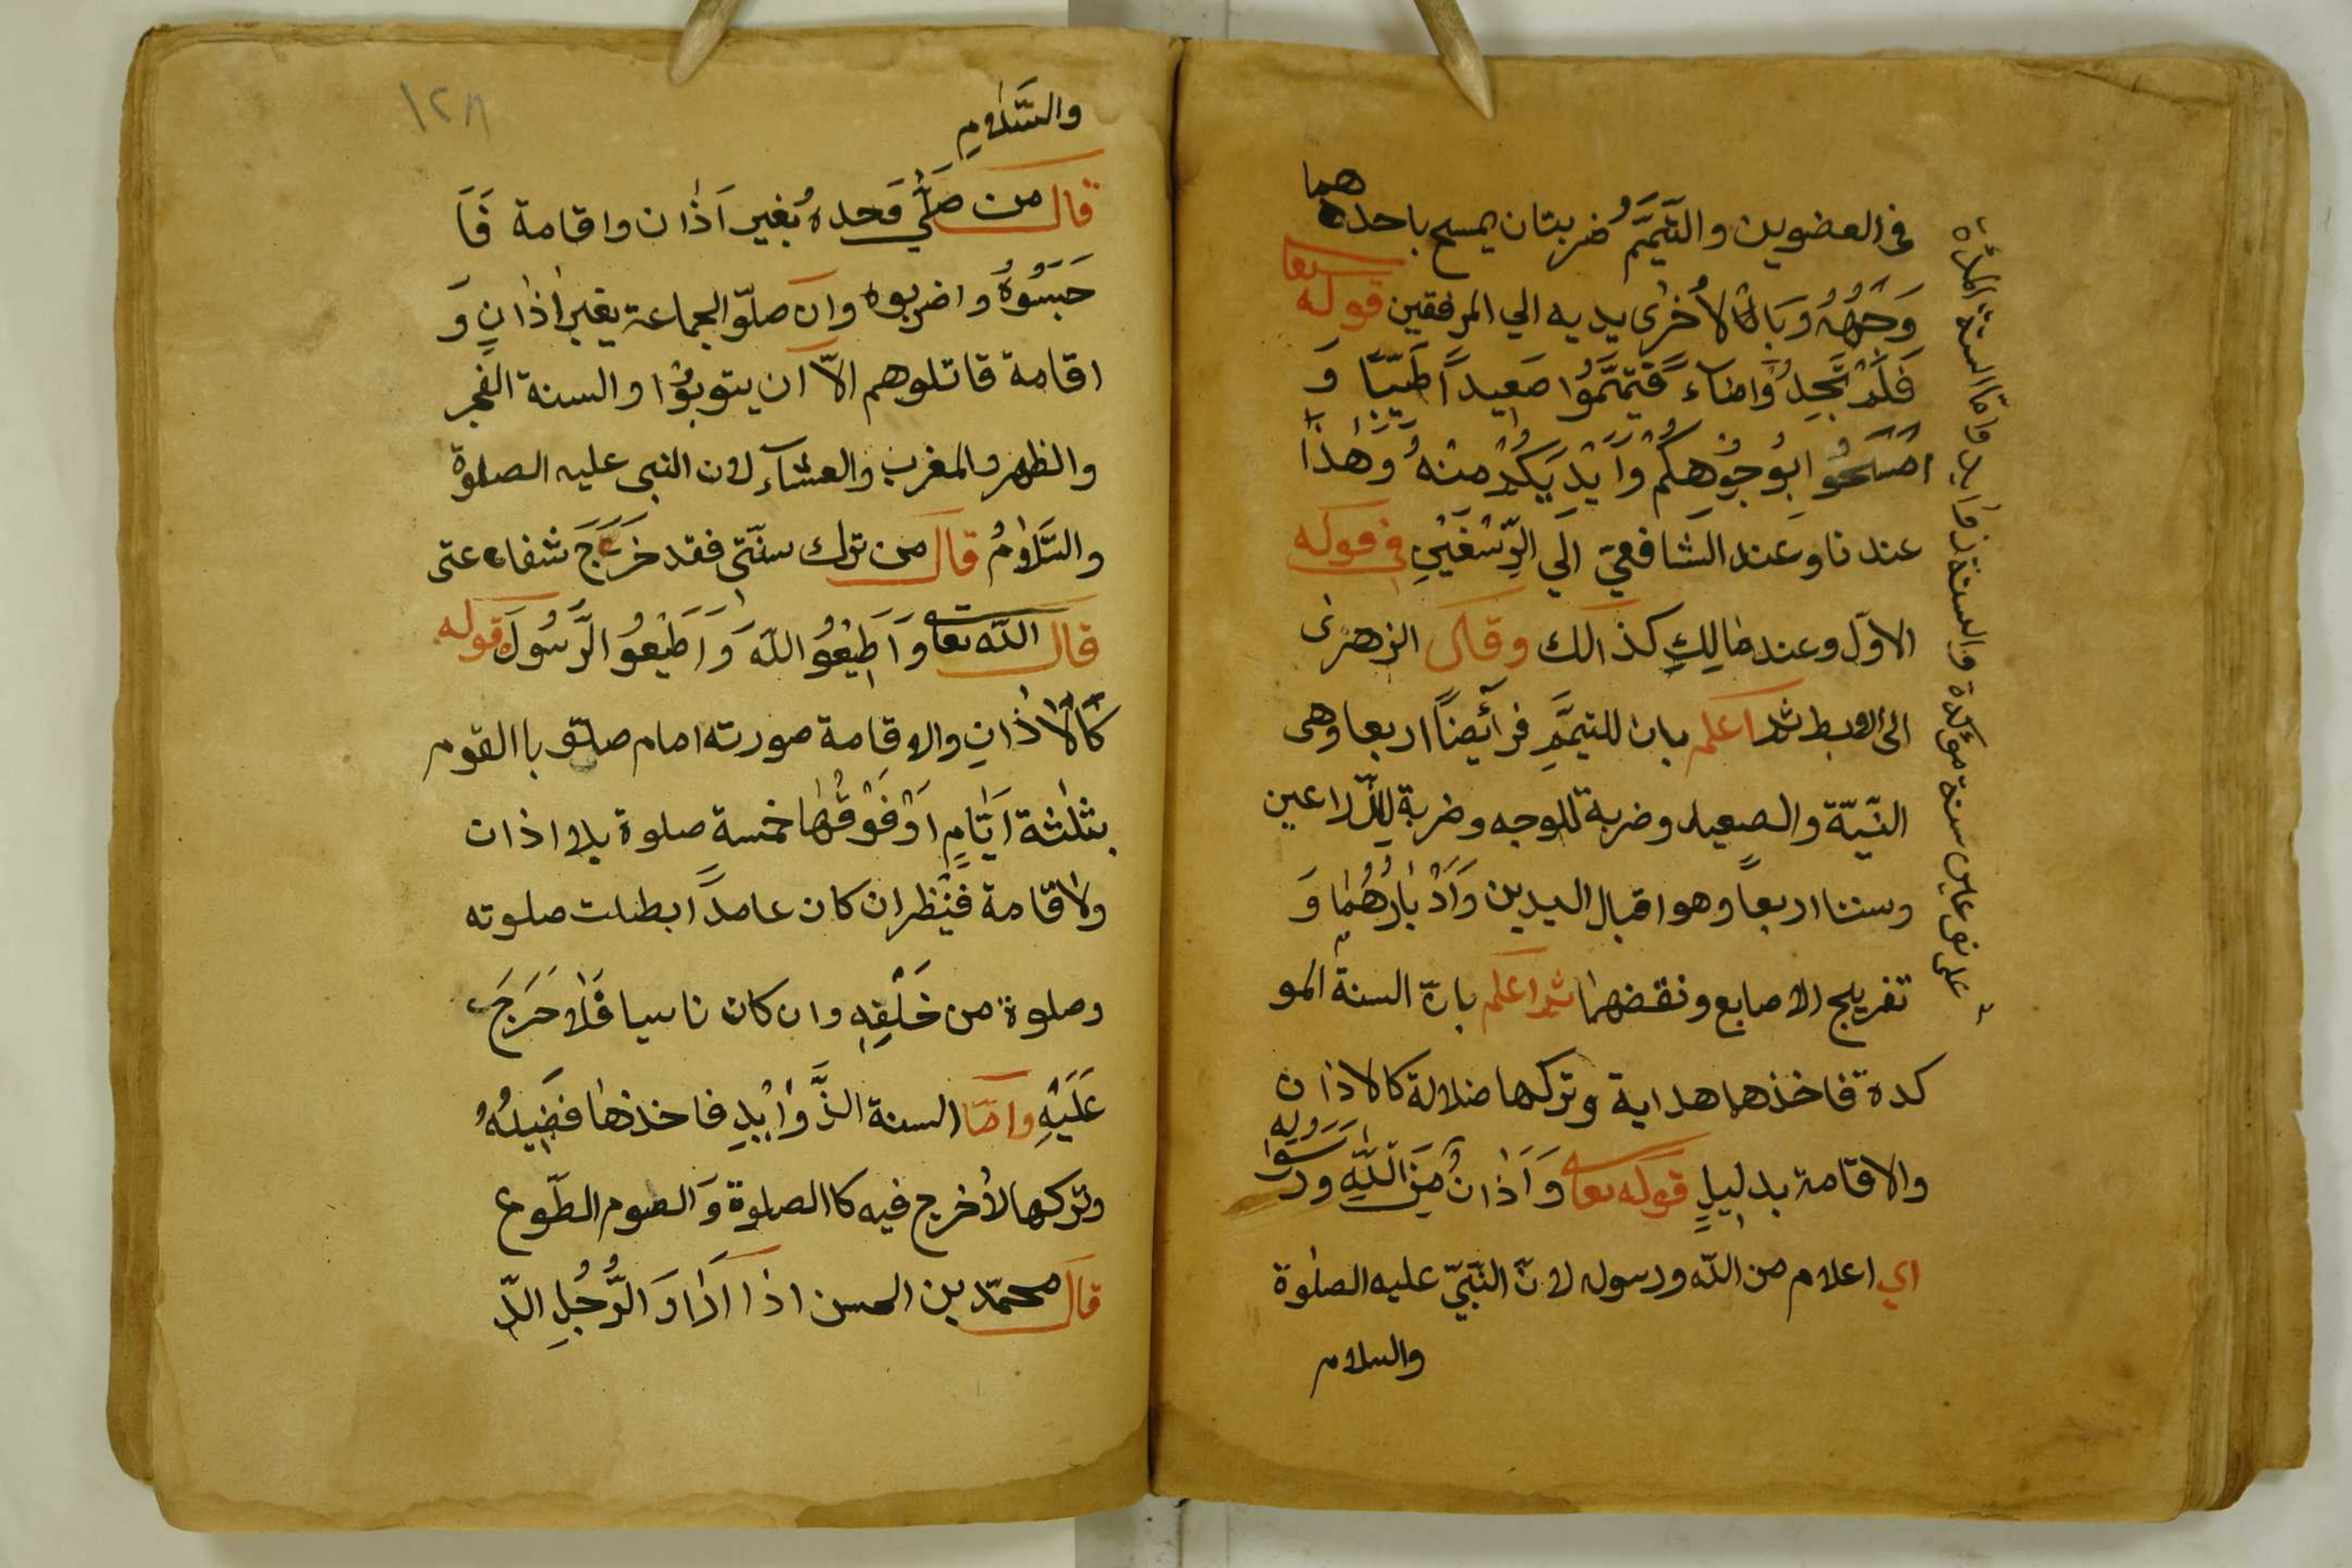 في العضوين والتّيمّمُ ضربتان يمسح باحدهما
وَجْهُهُ وَبَالاُخرٰى يديه الي المرفقين قوله تعا
فَلَمْ تَجِدُوْا مَاءً فَتَيَمَّمُوْا صَعِيداً طَيّبًا وَ
امْسَحُوْا بِوُجُوْهِكُمْ وَاَيْدِيَكُمْ مِنْهُ وَهٰذَا
عندنا وَعند الشّافعيّ الَي الرِّسْغَيْنِ في قوله
الاوّل وعند مٰالِكٍ كذالك وقال الزهرىٰ
الى الابط ثم اعلم بان للتيمَّمِ فرآئضاً اربعا وهى
النّيّة والصعيد وضربة للوجه وضربة للذّراعين
وسننا اربعاً وهو اقبال اليدين وَاَدْبٰارُهُمٰا وَ
تفريج الاصابع ونفضهمٰا ثم اعلم بانّ السنة المو
كدة فاخذها هداية وتركها ضلالة كالاذان
والاقامة بدليلٍ قوله تعا وَاَذٰانٌ مِنَ اللّٰهِ وَرَسُوْلِهِ
اي اعلام من اللّه ورسوله لانّ النّبيّ عليه الصلوة
والسلام
والسَّلٰامِ
قال من صَلّٰي وَحدهُ بُغير اَذٰان واقامة فَا
حَبَسُوْهُ واضربوه وان صلّوا الجماعة بغير اذانٍ وَ
اقامة قاتلوهم الاّ ان يتوبُوْا والسنة الفجر
والظهر والمغرب والعشآء لان النبى عليه الصلوة
والسَّلٰامُ قال من ترك سنّتى فقد خَرَجَ شفاعتى
قال اللّه تعا وَاَطِيْعُوا اللّهَ وَاَطِيْعُوا الرَّسُولَ قوله
كَالْاَذٰانِ والاقامة صورته امام صلّى باالقوم
بثلٰثة اَيّٰامٍ اَوْ فَوْقُهٰا خمسة صلوة بلا اذان
ولاقامة فيُنْظر ان كان عامداً ابطلت صلوته
وصلوة من خَلْفِهِ وان كان ناسيا فَلٰا حَرَجَ
عَلَيْهِ وامّا السنة الزَّوٰايْدِ فاخذهٰا فضِيلةُ
وتركها لاٰحرج فيه كاالصلوة وَالصوم الطّوع
قال محمّد بن الحسن اذا اَرٰادَ الرَّجُلِ الدّ